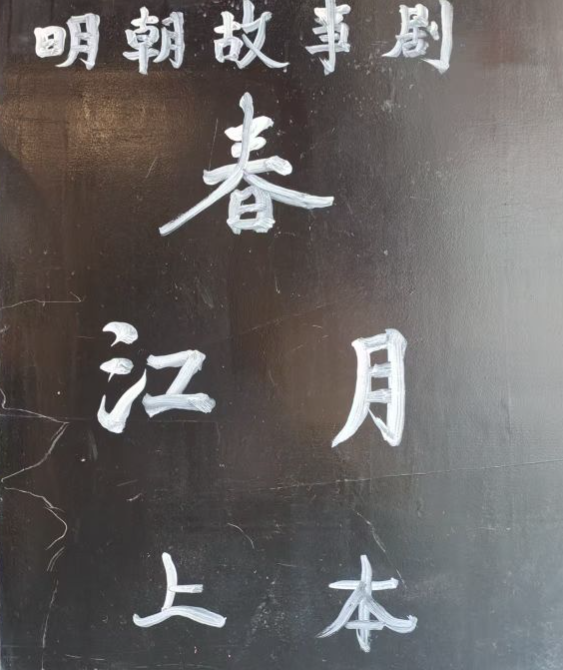 明朝故事剧
春
江月
上本